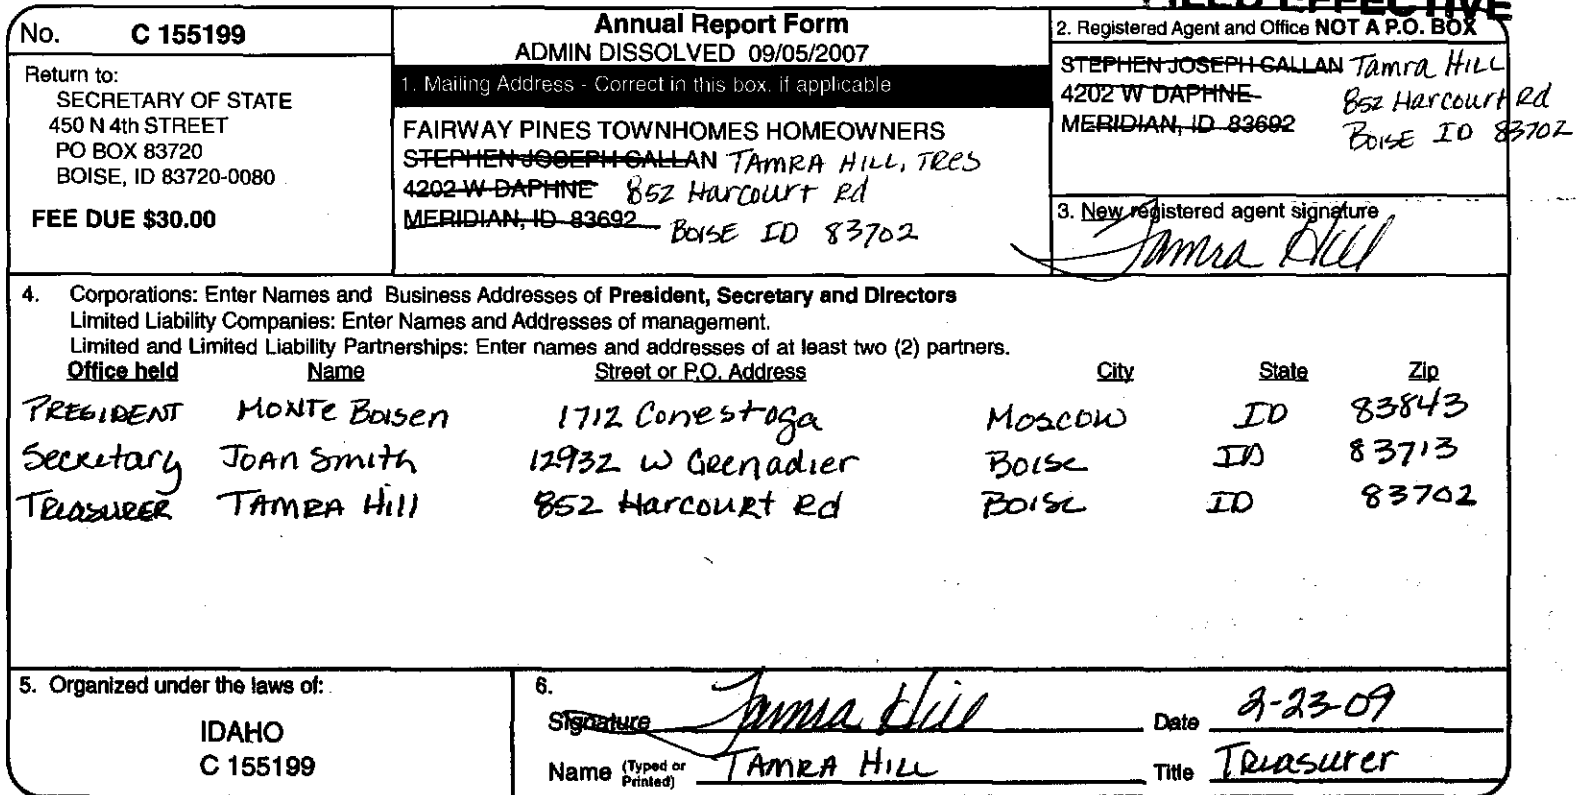 FILED EFFECTIVE
No. C 155199
Return to:
SECRETARY OF STATE
450 N 4th STREET
PO BOX 83720
BOISE, ID 83720-0080
FEE DUE $30.00
Annual Report Form
ADMIN DISSOLVED 09/05/2007
1. Mailing Address - Correct in this box, if applicable
FAIRWAY PINES TOWNHOMES HOMEOWNERS
STEPHEN JOSEPH CALLAN TAMRA HILL, TRES
4202 W DAPHNE 852 Harcourt Rd
MERIDIAN, ID 83692 BOISE ID 83702
2. Registered Agent and Office NOT A P.O. BOX
STEPHEN JOSEPH CALLAN Tamra HILL
4202 W DAPHNE 852 Harcourt Rd
MERIDIAN, ID 83692 BOISE ID 83702
3. New registered agent signature
Tamra Hill
4. Corporations: Enter Names and Business Addresses of President, Secretary and Directors
Limited Liability Companies: Enter Names and Addresses of management.
Limited and Limited Liability Partnerships: Enter names and addresses of at least two (2) partners.
Office held Name Street or P.O. Address City State Zip
PRESIDENT MONTE BOISEN 1712 Conestoga Moscow ID 83843
Secretary JOAN Smith 12932 W Grenadier Boise ID 83713
TREASURER TAMRA Hill 852 Harcourt Rd Boise ID 83702
5. Organized under the laws of:
IDAHO
C 155199
6.
Signature Tamra Hill Date 2-23-09
Name (Typed or Printed) TAMRA HILL Title Treasurer